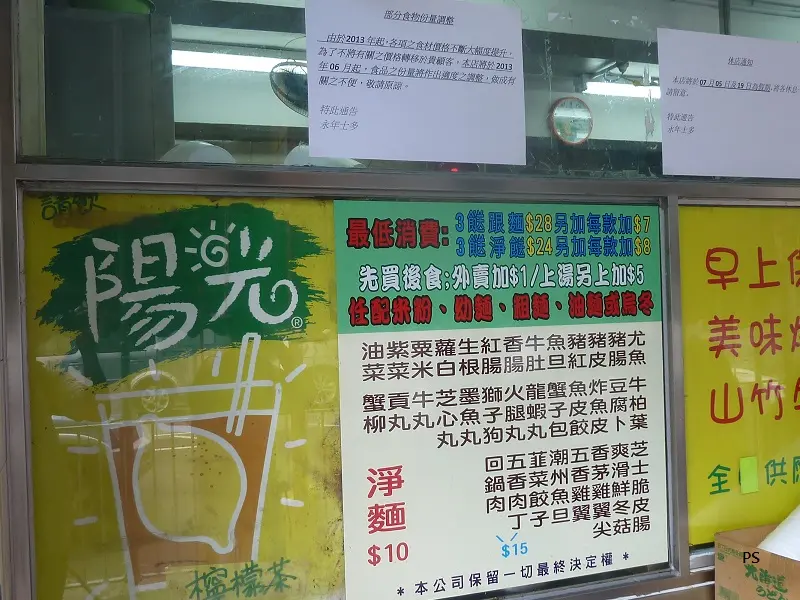 部分食物份量調整
由於2013年起,各項之食材價格不斷大幅度提升,
為了不將有關之價格轉移於貴顧客,本店將於2013
年06月起,食品之份量將作出適度之調整,做成有
關之不便,敬請原諒。
特此通告
永年士多
休店通知
本店將於07月05日及19日為假期,將各休息一
請留意。
特此通告
永年士多
請飲
陽光
®
檸檬茶
最低消費:
3餸跟麵$28另加每款加$7
3餸淨餸$24另加每款加$8
先買後食;外賣加$1/上湯另上加$5
任配米粉、幼麵、粗麵、油麵或烏冬
尤魚
豬腸
豬皮
豬紅
魚旦
牛肚
香腸
紅腸
生根
蘿白
粟米
紫菜
油菜
牛柏葉
豆腐卜
炸魚皮
魚皮餃
蟹子包
龍蝦丸
火腿丸
獅子狗
墨魚丸
芝心丸
牛丸
貢丸
蟹柳
芝士脆皮腸
爽滑鮮冬菇
香茅雞翼尖
五香雞翼
潮州魚旦
韮菜餃子
五香肉丁
回鍋肉
$15
淨麵
$10
*本公司保留一切最終決定權*
早上
美味
山竹牛
全
供應
PS